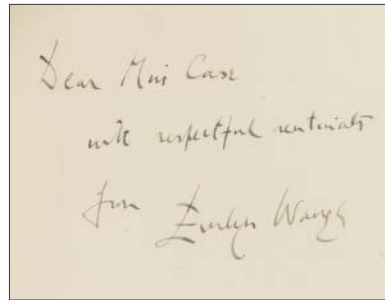 Dear Miss Case
with respectful sentiments
from Evelyn Waugh